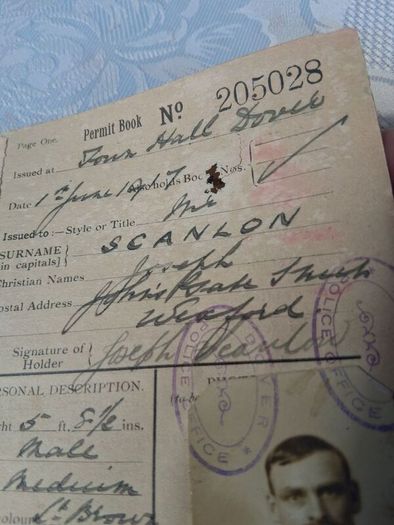 Page One. Permit Book No 205028
Issued at Town Hall Dover
Date 1st June 1917 holds Boo Nos.
Issued to:—Style or Title Mr
SURNAME } SCANLON
in capitals]
Christian Names Joseph
ostal Address John's Street
Wexford
Signature of Holder { Joseph Scanlon
RSONAL DESCRIPTION.
ht 5 ft. 8½ ins.
Male
Medium
olour Lt Brown
DOVER POLICE OFFICE
POLICE OFFICE